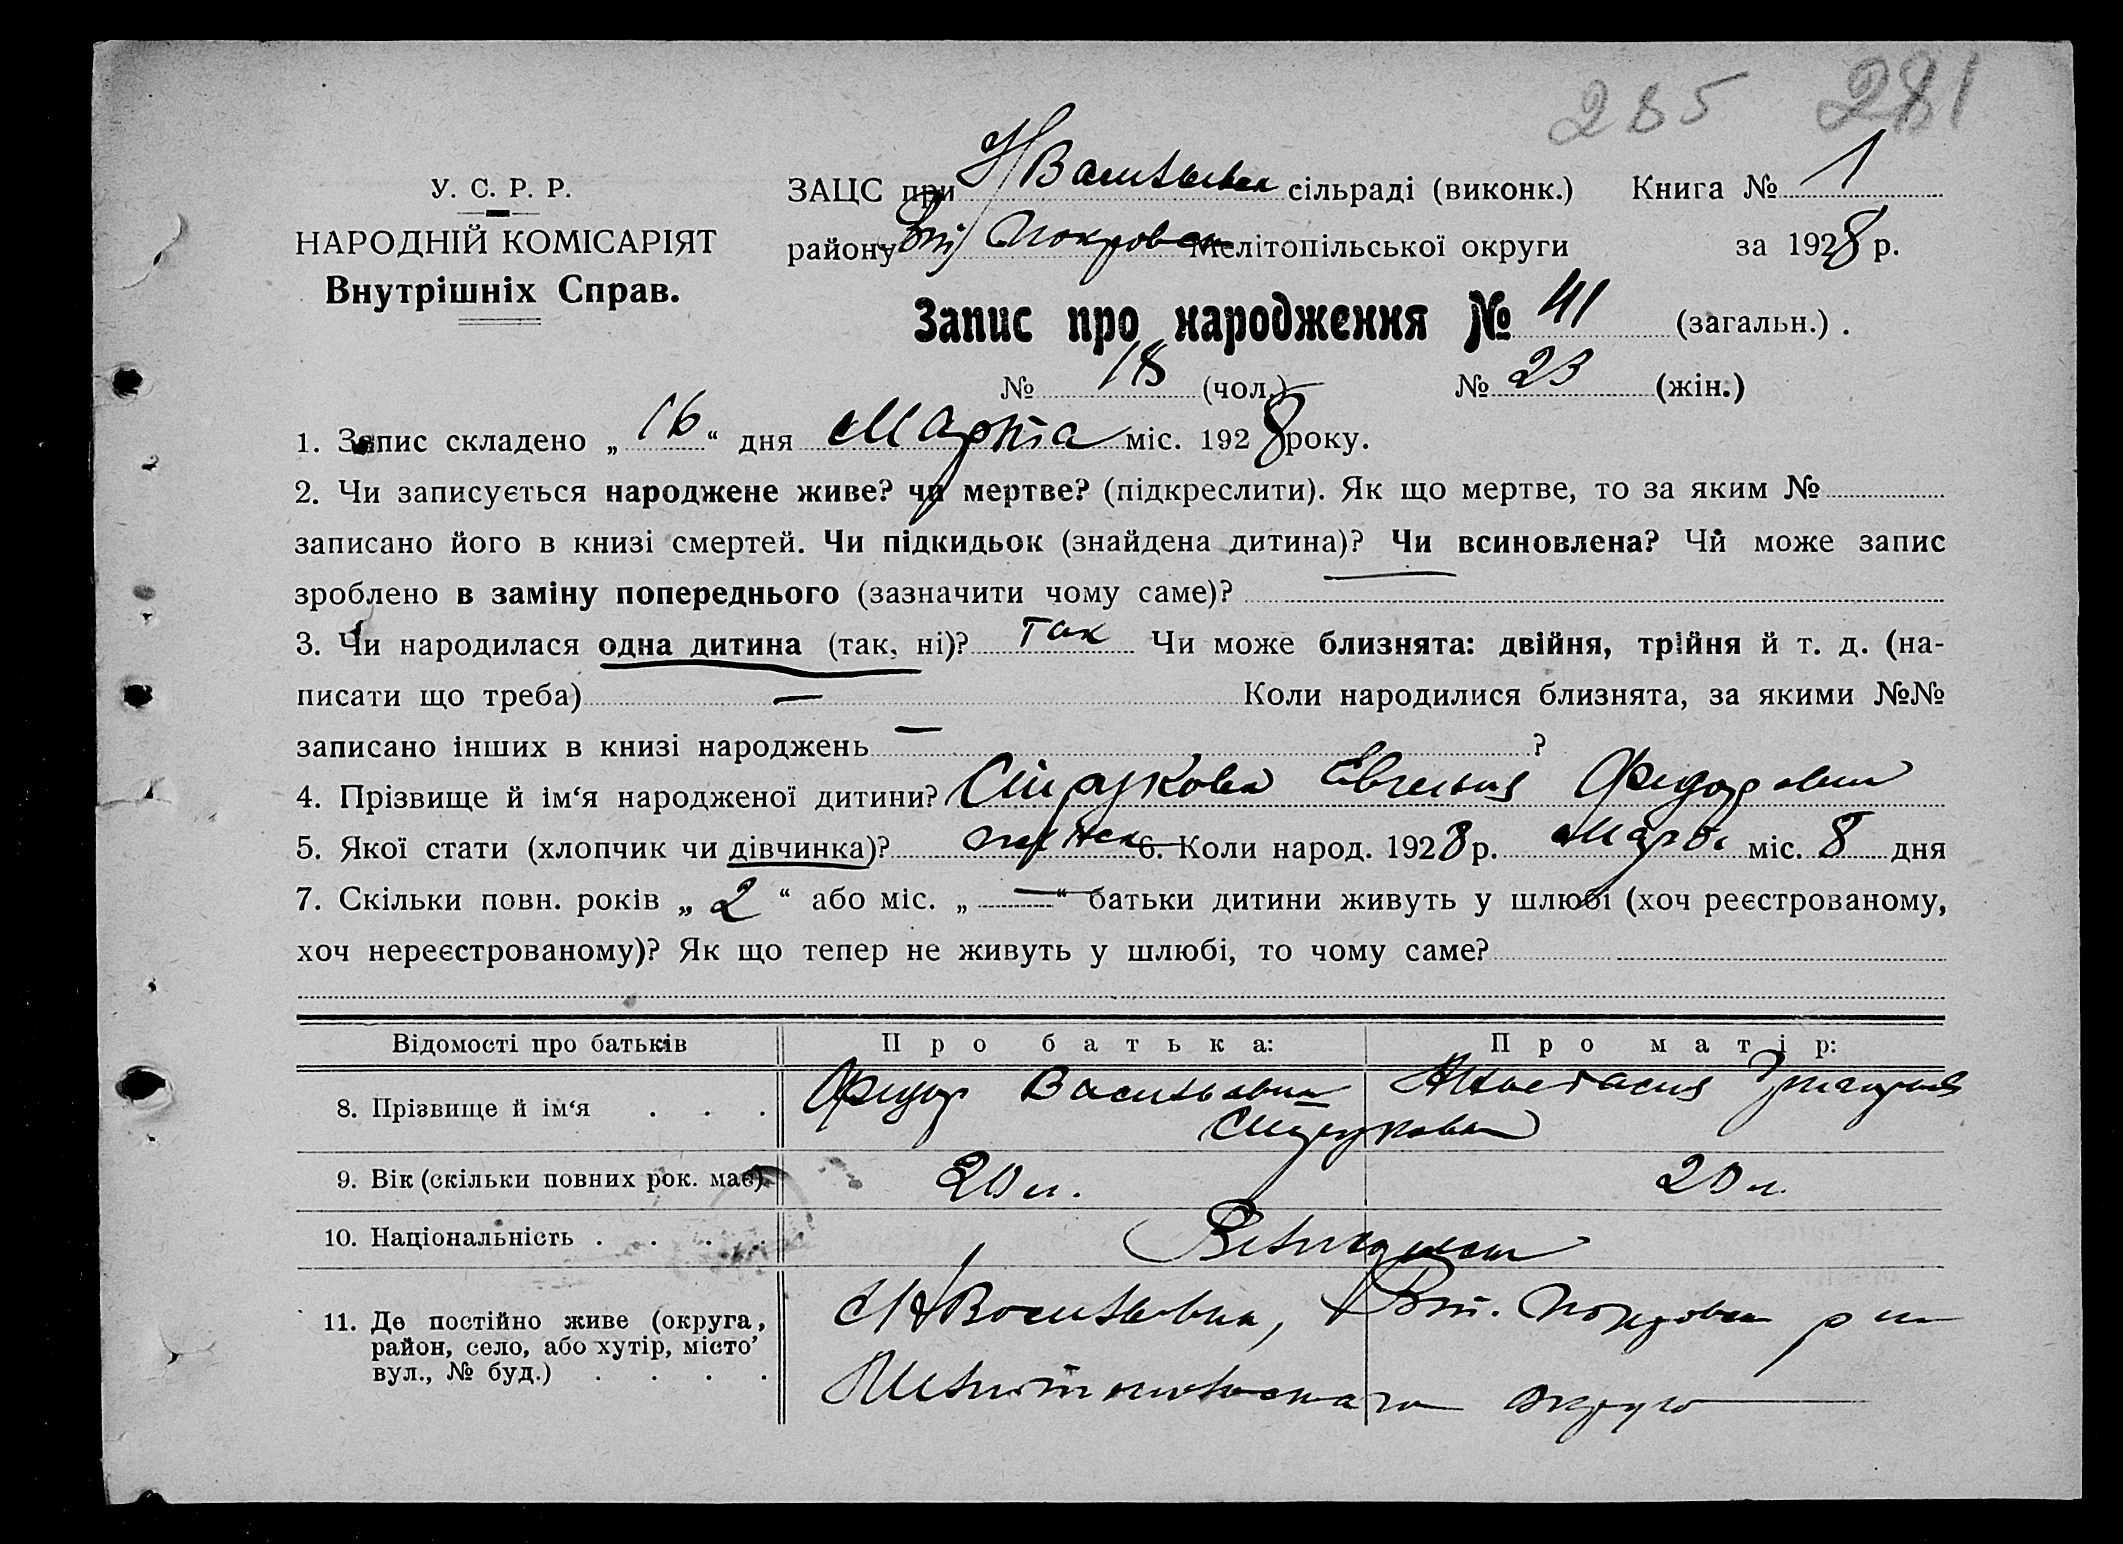 285 281
У. С. Р. Р.
НАРОДНІЙ КОМІСАРІЯТ
Внутрішніх Справ.
ЗАЦС при Н Васильевка сільраді (виконк.) Книга № 1
району Вт) Покровск Мелітопільської округи за 1928 р.
Запис про народження № 41 (загальн.) .
№ 18 (чол.) № 23 (жін.)
1. Запис складено „ 16 “ дня Марта міс. 1928 року.
2. Чи записується народжене живе? чи мертве? (підкреслити). Як що мертве, то за яким №
записано його в книзі смертей. Чи підкидьок (знайдена дитина)? Чи всиновлена? Чи може запис
зроблено в заміну попереднього (зазначити чому саме)?
3. Чи народилася одна дитина (так, ні)? так Чи може близнята: двійня, трійня й т. д. (на-
писати що треба) — Коли народилися близнята, за якими №№
записано інших в книзі народжень — ?
4. Прізвище й ім‘я народженої дитини? Евгения Федоровна
5. Якої стати (хлопчик чи дівчинка)? женск 6. Коли народ. 1928 р. Марта міс. 8 дня
7. Скільки повн. років „ 2 “ або міс. „ — “ батьки дитини живуть у шлюбі (хоч реєстрованому,
хоч нереєстрованому)? Як що тепер не живуть у шлюбі, то чому саме?
Відомості про батьків Про батька: Про матір:
8. Прізвище й ім‘я . . . Федор Васильевич Анастасия
9. Вік (скільки повних рок. має) 20 л. 20 л.
10. Національність . . . .
11. Де постійно живе (округа, Н Васильевка, Вт. Покровск р на
район, село, або хутір, місто’
вул., № буд.) . . . . Мелитопольскаго округа